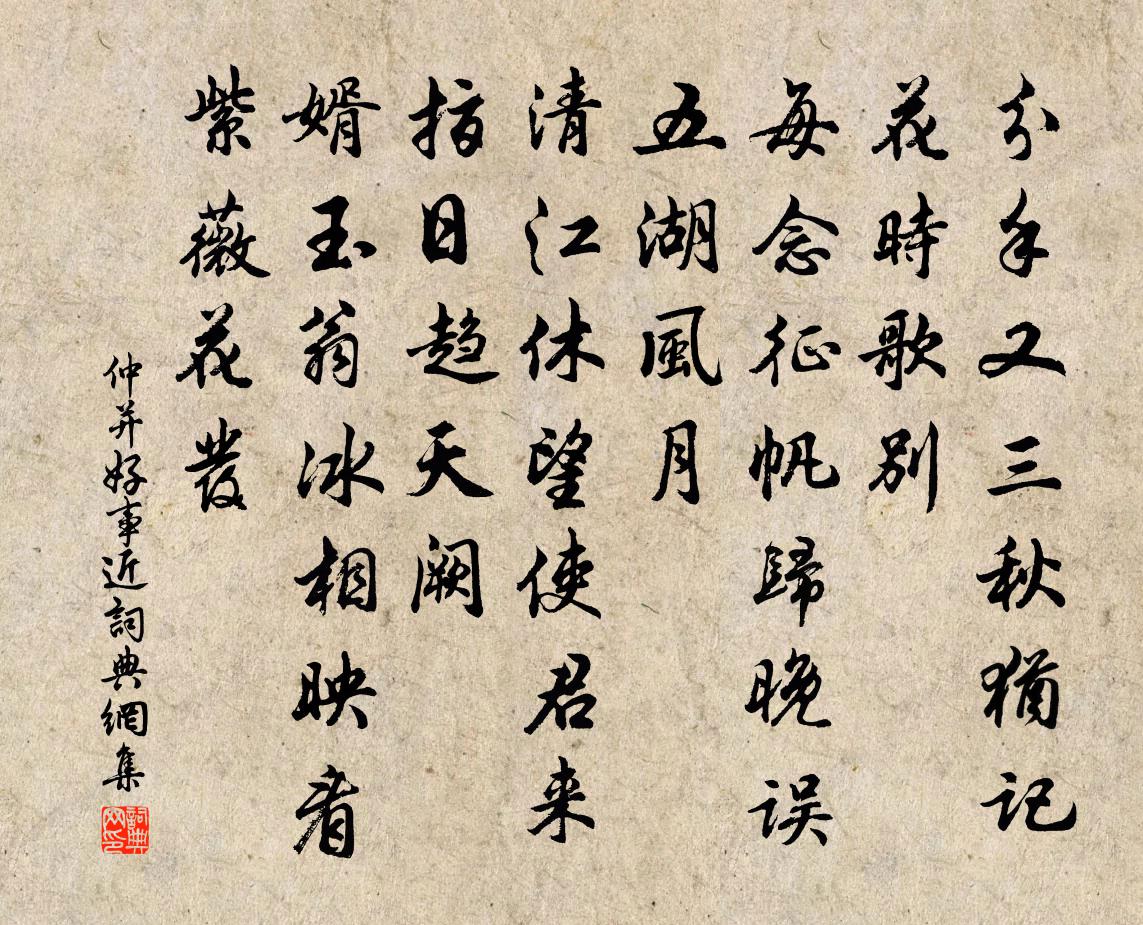 分手又三秋猶记
花時歌别
每念征帆歸晚误
五湖風月
清江休望使君来
指日趋天阙
婿玉翁冰相映看
紫薇花發
仲并好事近詞典網集
詞典网印